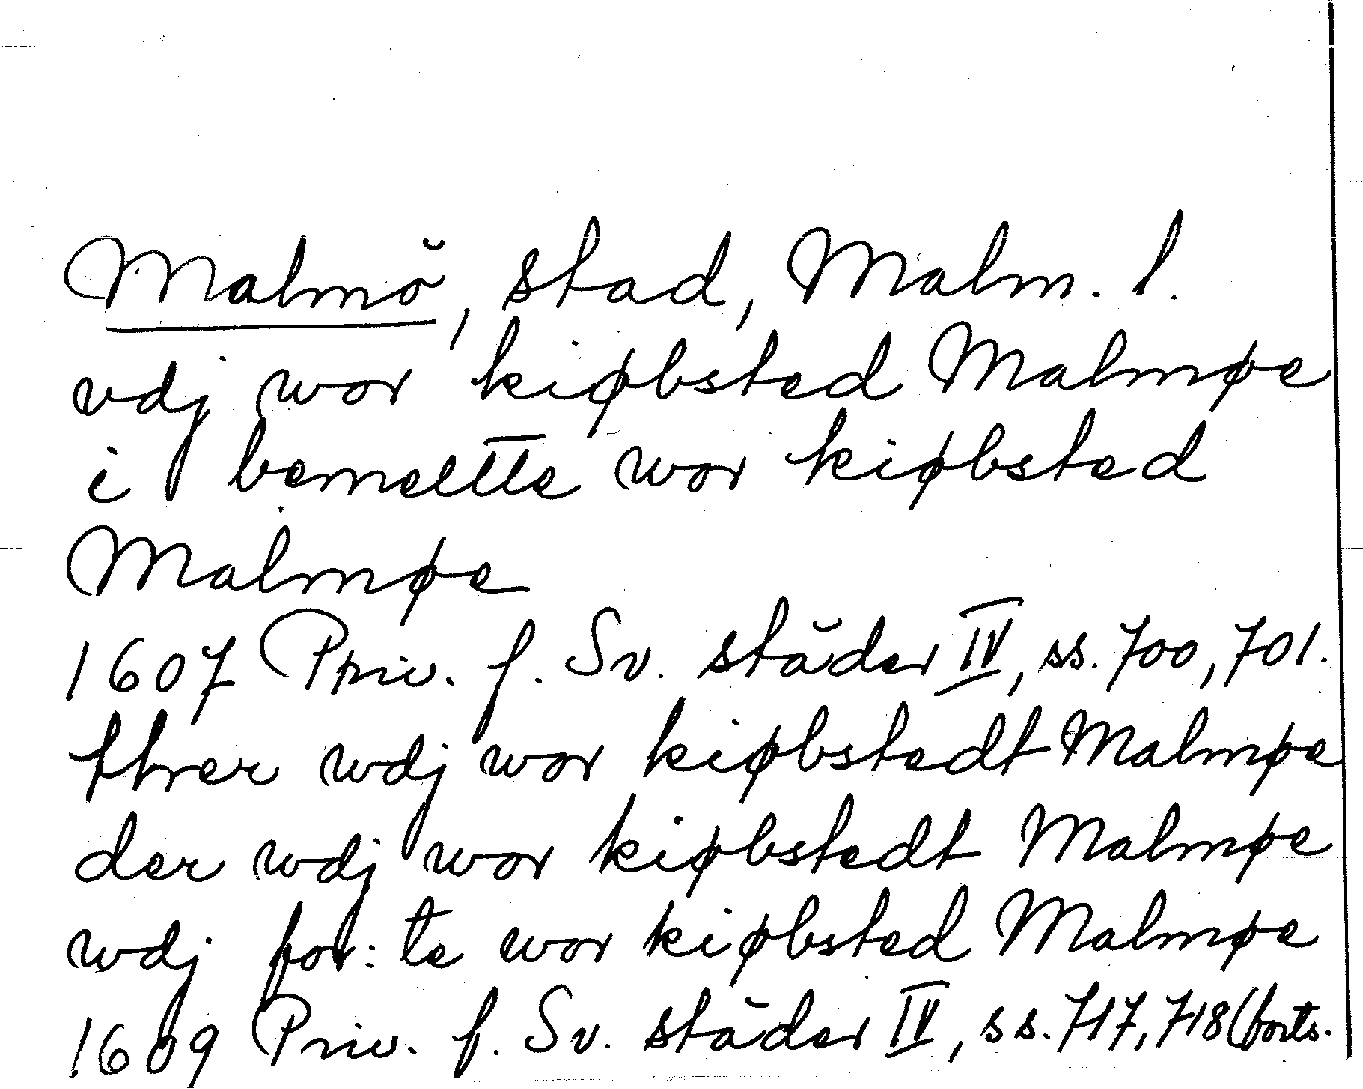 Malmö, stad, Malm. l.
vdj wor kiøbsted Malmøe
i bemeltte wor kiøbsted
Malmøe
1607 Priv. f. Sv. städer IV, ss. 700, 701.
threr wdj wor kiøbstedt Malmøe
der wdj wor kiøbstedt Malmøe
wdj for: te wor kiøbsted Malmøe
1609 Priv. f. Sv. städer IV, ss. 717, 718 (forts.